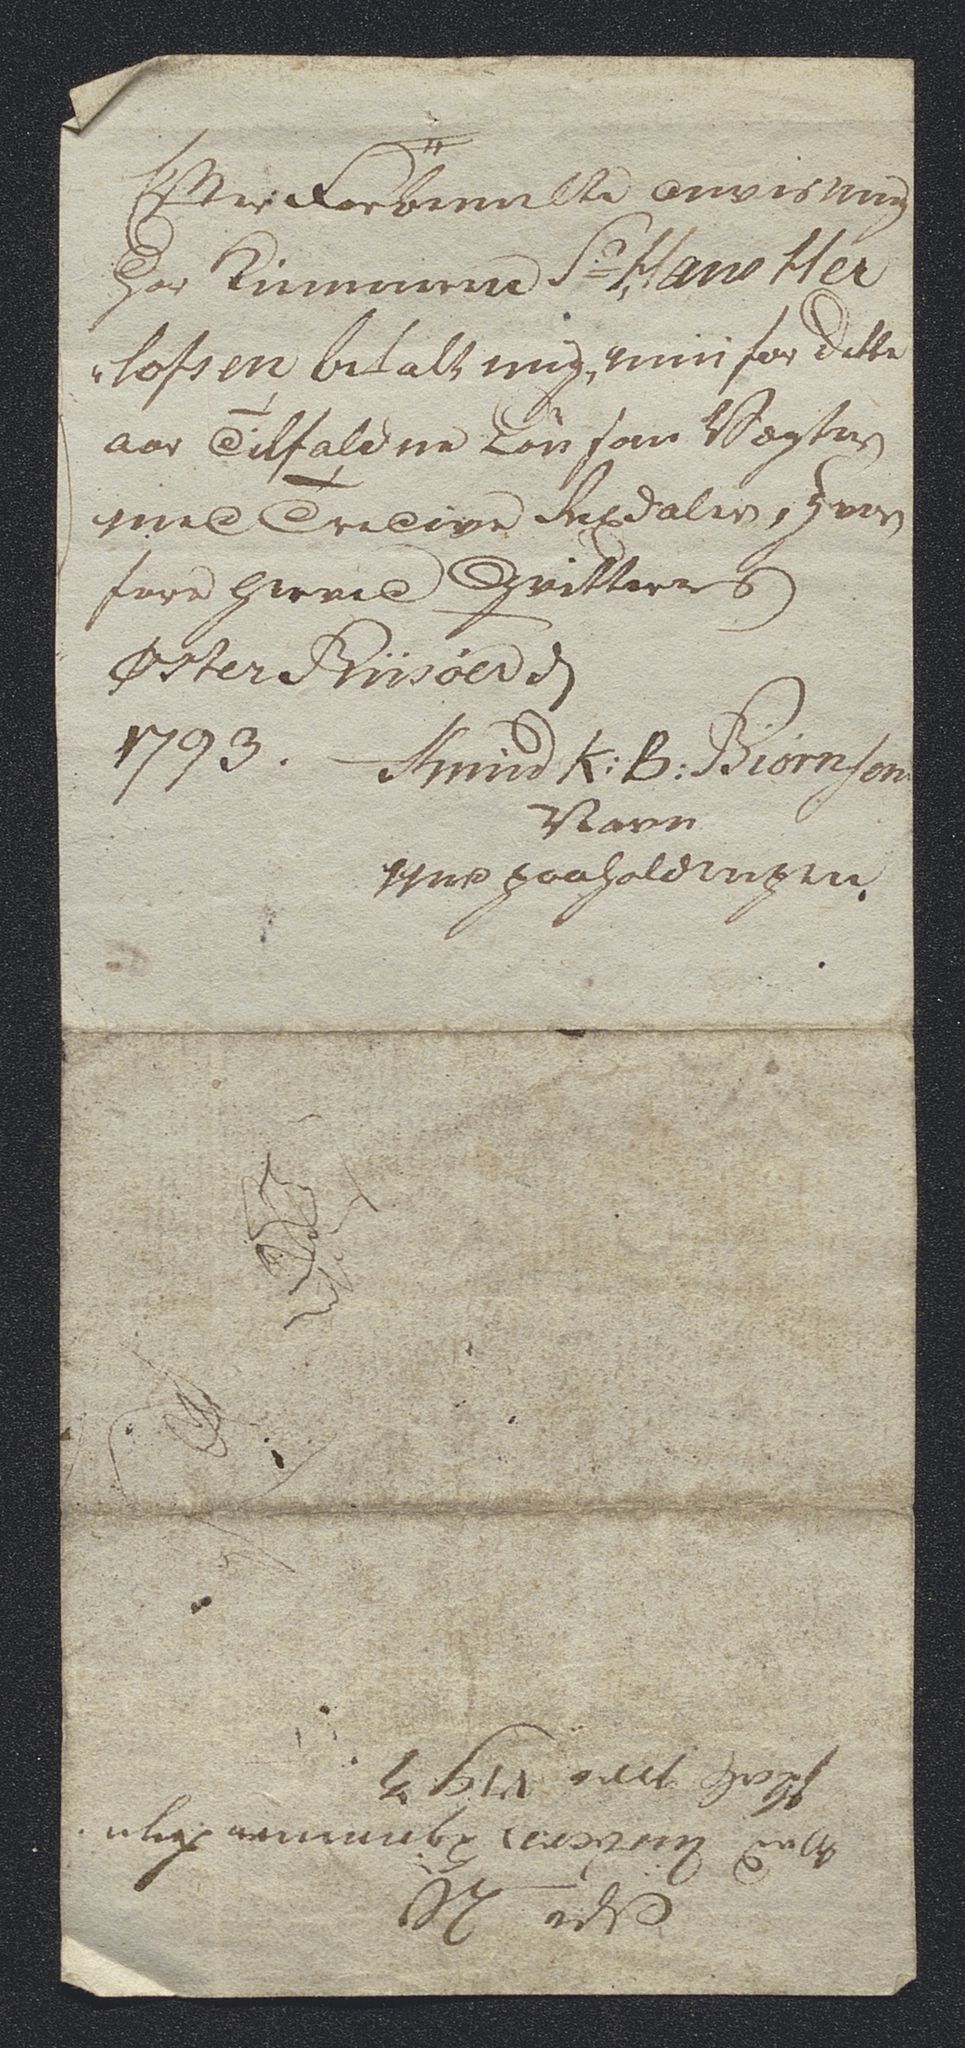 Efter Forbemelte anvisning
har Kiemneren Sr. Hans Her
„lofsen betalt mig, min for dette
aar Tilfaldne Løn som Vægter
med Tredive Rixdaler, hvor
fore herved Qvitteres
Øster Riisøer d
1793. Amund K: B: Biørnsen
Navn
med paaholden pen.
No
Ved
Regnskab pro 1793